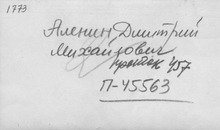 1773.
Аленин Дмитрий
Михайлович
457
П-45563